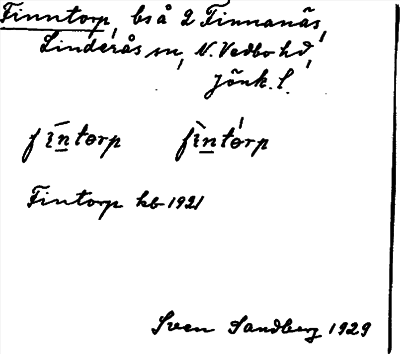 Finntorp, bs å 2 Finnanäs,
Linderås sn, N. Vedbo hd,
Jönk. l.
fīn̲torp fìn̲tórp
Fintorp kb 1921
Sven Sandberg 1929